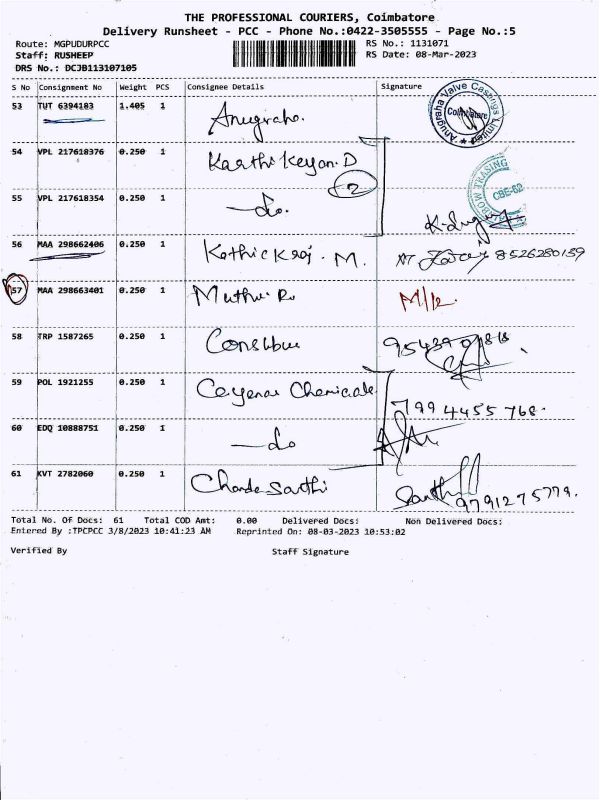 THE PROFESSIONAL COURIERS, Coimbatore
Delivery Runsheet - PCC - Phone No.:0422-3505555 - Page No.:5
Route: MGPUDURPCC RS No.: 1131071
Staff: RUSHEEP RS Date: 08-Mar-2023
DRS No.: DCJB113107105
S No Consignment No Weight PCS Consignee Details Signature
53 TUT 6394183 1.405 1 Anugraha. Anugraha Valve Castings Limited Coimbatore
54 VPL 217618376 0.250 1 Karthi Keyan. D
2 CBE-62
55 VPL 217618354 0.250 1 —do.
56 MAA 298662406 0.250 1 Kathick Raj. M. 8526280159
57 MAA 298663401 0.250 1 Muthu M/R.
58 TRP 1587265 0.250 1
59 POL 1921255 0.250 1 Chemicals
7994455768.
60 EDQ 10888751 0.250 1 —do
61 KVT 2782060 0.250 1 Sarthi
9791275779.
Total No. Of Docs: 61 Total COD Amt: 0.00 Delivered Docs: Non Delivered Docs:
Entered By :TPCPCC 3/8/2023 10:41:23 AM Reprinted On: 08-03-2023 10:53:02
Verified By Staff Signature